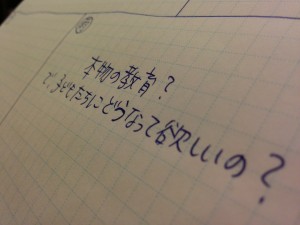 本物の教育？
で、子どもたちにどうなって欲しいの？